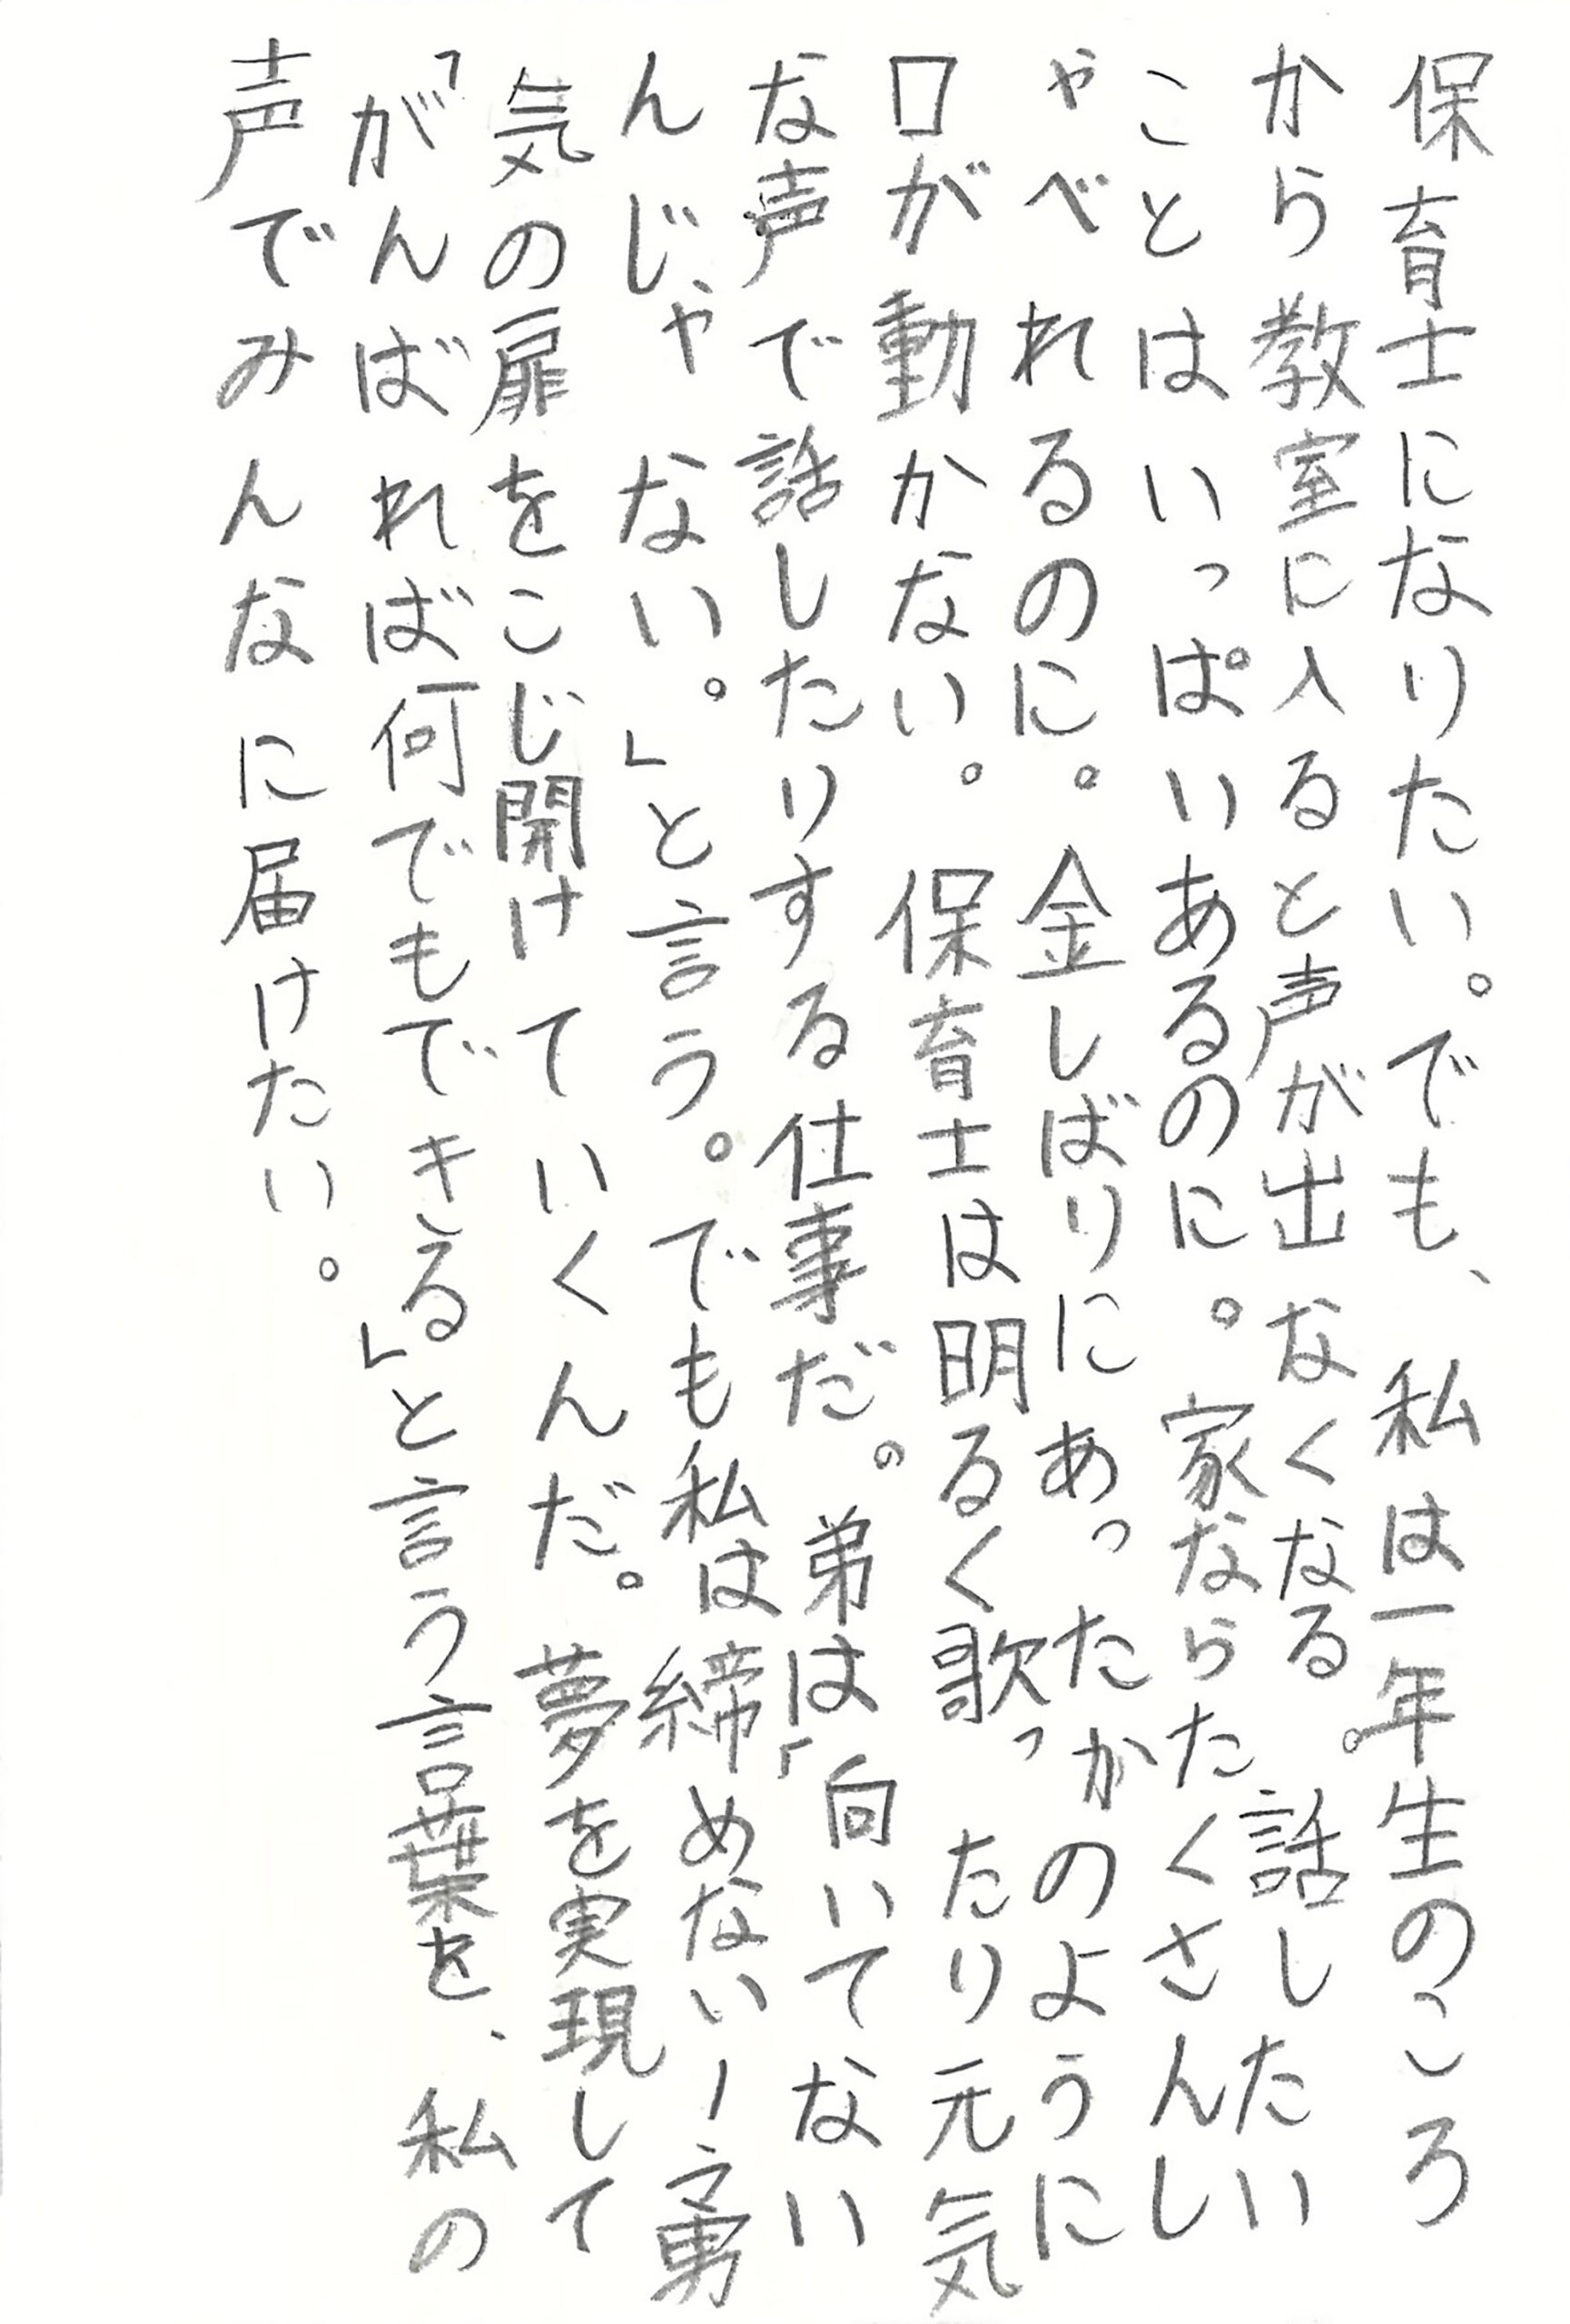 保育士になりたい。でも、私は一年生のころ
から教室に入ると声が出なくなる。話したい
ことはいっぱいあるのに。家ならたくさんし
ゃべれるのに。金しばりにあったかのように
口が動かない。保育士は明るく歌ったり元気
な声で話したりする仕事だ。弟は「向いてない
んじゃない。」と言う。でも私は締めない!勇
気の扉をこじ開けていくんだ。夢を実現して
「がんばれば何でもできる」と言う言葉を、私の
声でみんなに届けたい。